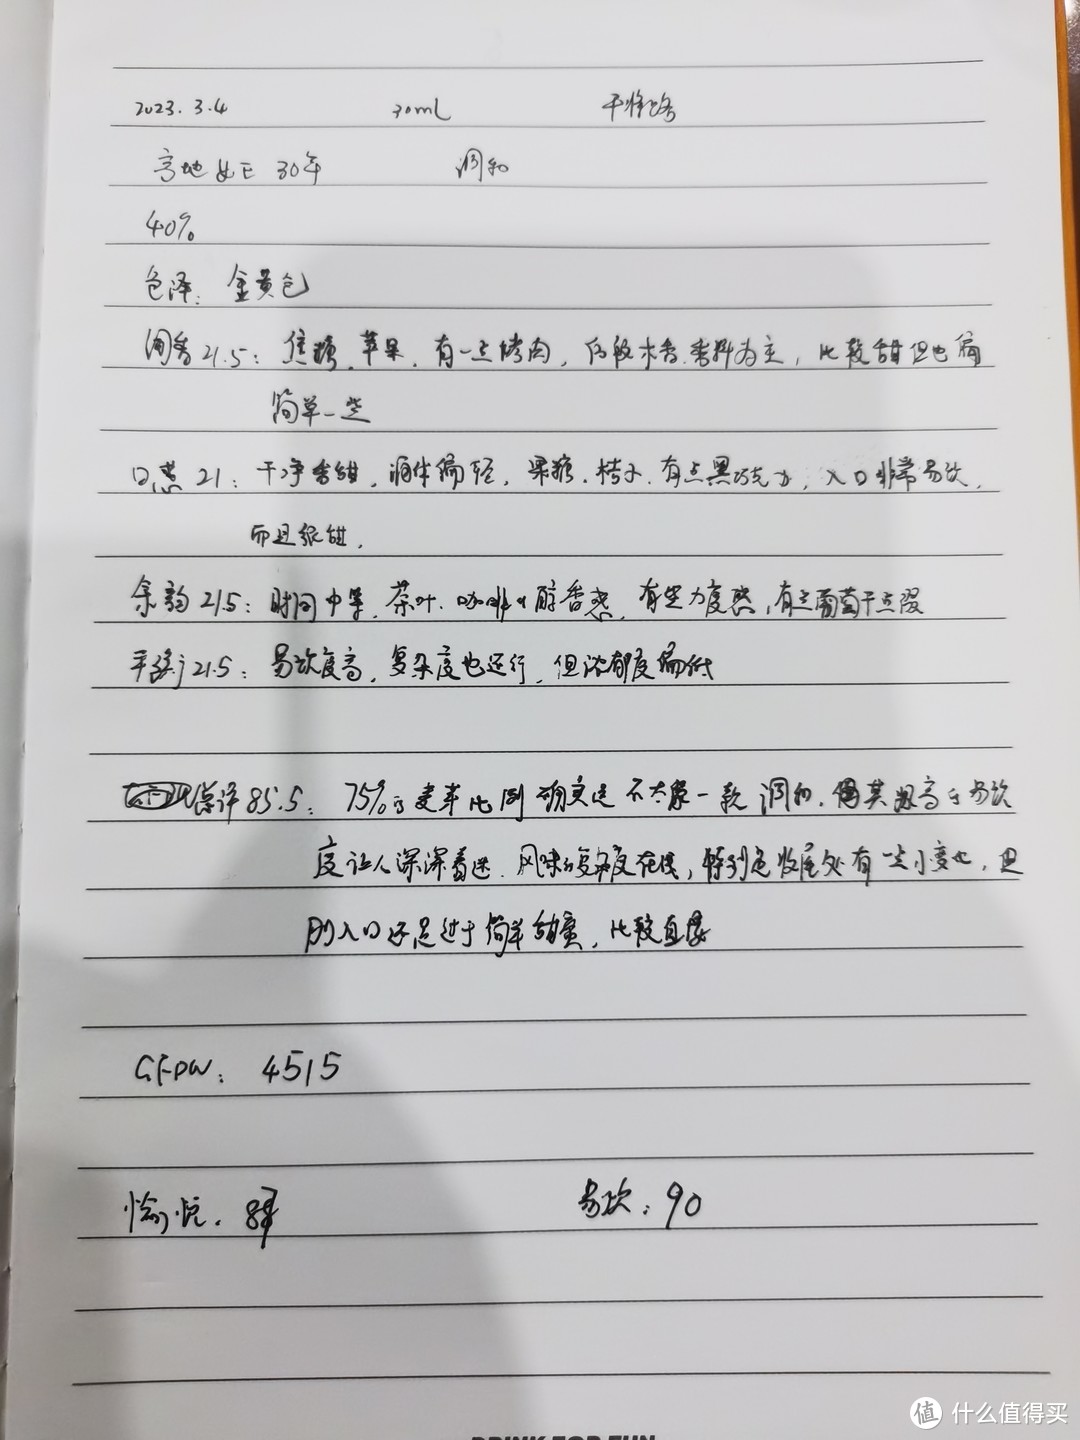 2023. 3.4 30mL 干将路
高地女王 30年 调和
40%
色泽: 金黄色
闻香 21.5: 焦糖、苹果, 有一点烤肉, 后段木香、香料为主, 比较甜但也偏
简单一些
口感 21: 干净香甜, 酒体偏轻, 果糖、桔子、有点黑巧克力, 入口非常易饮,
而且很甜,
余韵 21.5: 时间中等, 茶叶、咖啡的醇香感, 有些力度感, 有点葡萄干点缀
平衡 21.5: 易饮度高, 复杂度也还行, 但浓郁度偏低
总评 85.5: 75%的麦芽比例确实是不太像一款调和, 但其超高的易饮
度让人深深着迷. 风味的复杂度在线, 特别是收尾处有一点小变化, 但
刚入口还是过于简单甜蜜, 比较直接
GFDW: 4515
愉悦: 易饮: 90
值 什么值得买
DRINK FOR FUN